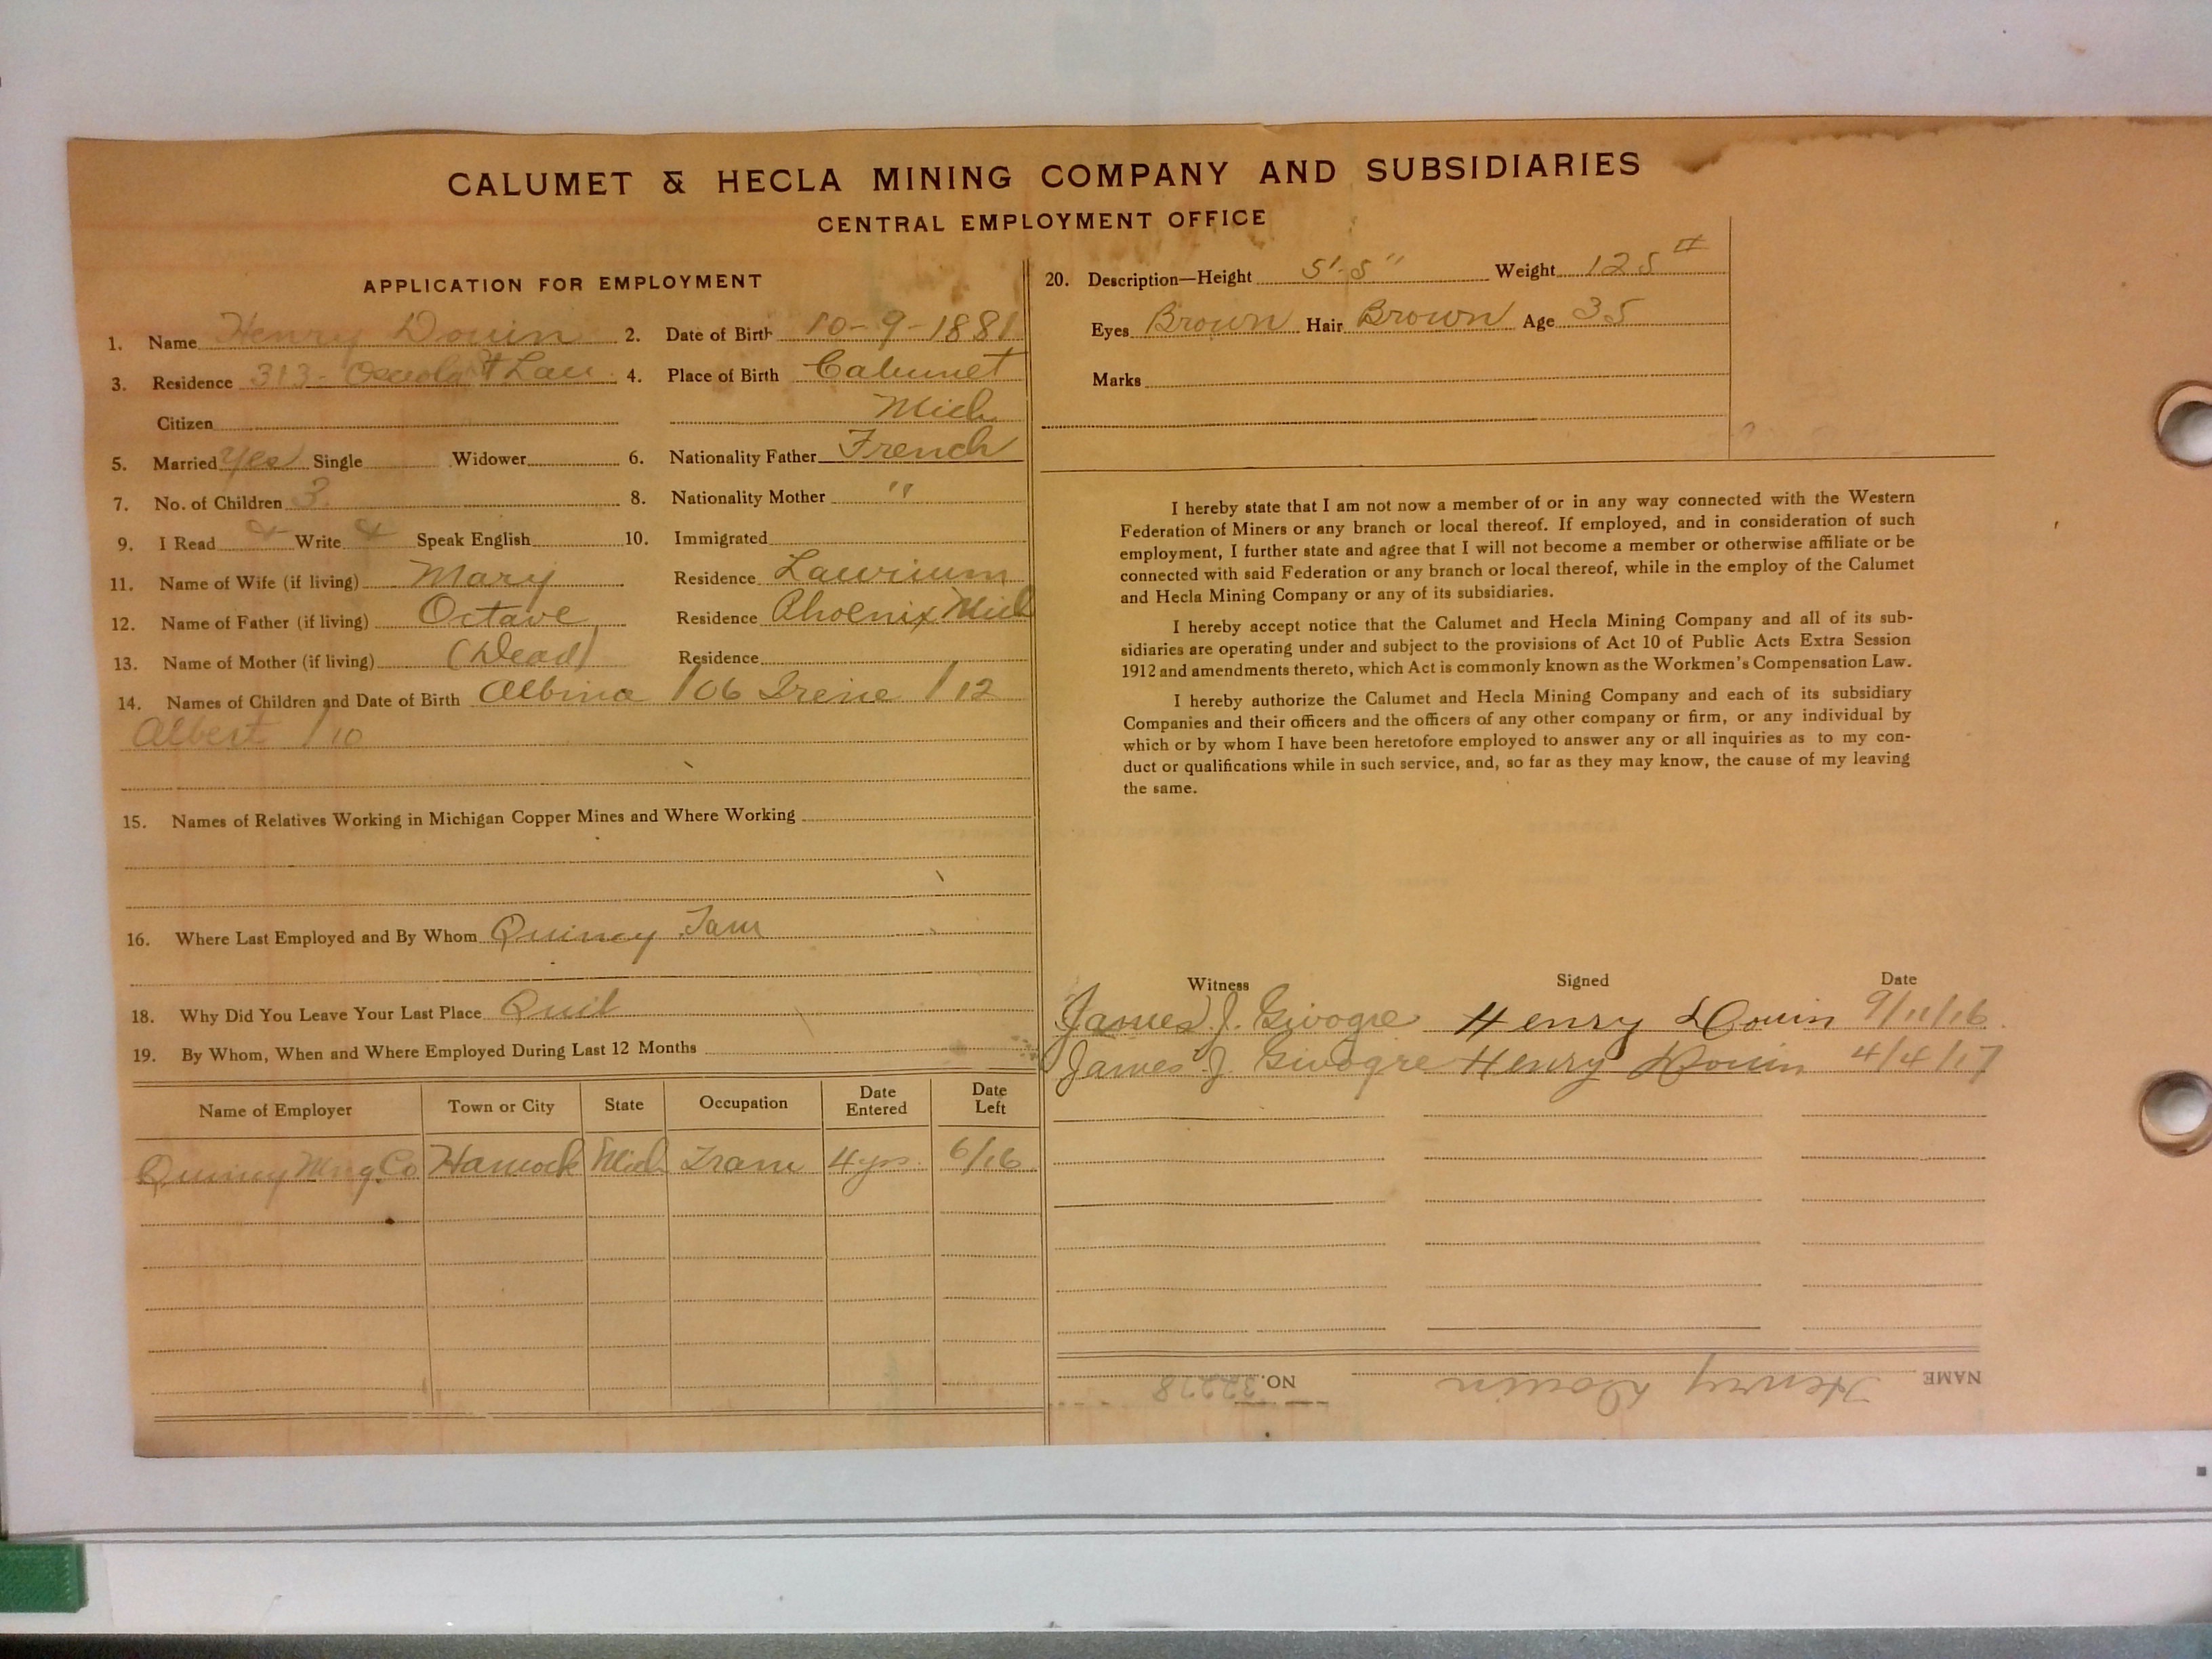 CALUMET & HECLA MINING COMPANY AND SUBSIDIARIES
CENTRAL EMPLOYMENT OFFICE
APPLICATION FOR EMPLOYMENT
1. Name Henry Douin 2. Date of Birth 10-9-1881
3. Residence 313- Osceola St Lau 4. Place of Birth Calumet
Citizen Mich
5. Married Yes Single Widower 6. Nationality Father French
7. No. of Children 3 8. Nationality Mother "
9. I Read Write Speak English 10. Immigrated
11. Name of Wife (if living) Mary Residence Lawrium
12. Name of Father (if living) Octave Residence Phoenix Mich
13. Name of Mother (if living) (Dead) Residence
14. Names of Children and Date of Birth Albina /06 Irene /12
Albert /10
15. Names of Relatives Working in Michigan Copper Mines and Where Working
16. Where Last Employed and By Whom Quincy Tram
18. Why Did You Leave Your Last Place Quit
19. By Whom, When and Where Employed During Last 12 Months
Name of Employer Town or City State Occupation Date Entered Date Left
Quincy Mng. Co Hancock Mich Tram 4 yrs. 6/16
20. Description—Height 5'-5" Weight 125 #
Eyes Brown Hair Brown Age 35
Marks
I hereby state that I am not now a member of or in any way connected with the Western
Federation of Miners or any branch or local thereof. If employed, and in consideration of such
employment, I further state and agree that I will not become a member or otherwise affiliate or be
connected with said Federation or any branch or local thereof, while in the employ of the Calumet
and Hecla Mining Company or any of its subsidiaries.
I hereby accept notice that the Calumet and Hecla Mining Company and all of its sub-
sidiaries are operating under and subject to the provisions of Act 10 of Public Acts Extra Session
1912 and amendments thereto, which Act is commonly known as the Workmen's Compensation Law.
I hereby authorize the Calumet and Hecla Mining Company and each of its subsidiary
Companies and their officers and the officers of any other company or firm, or any individual by
which or by whom I have been heretofore employed to answer any or all inquiries as to my con-
duct or qualifications while in such service, and, so far as they may know, the cause of my leaving
the same.
Witness Signed Date
James J. Givogre Henry Douin 9/11/16
James J. Givogre Henry Douin 4/4/17
NAME Henry Douin NO. 32278